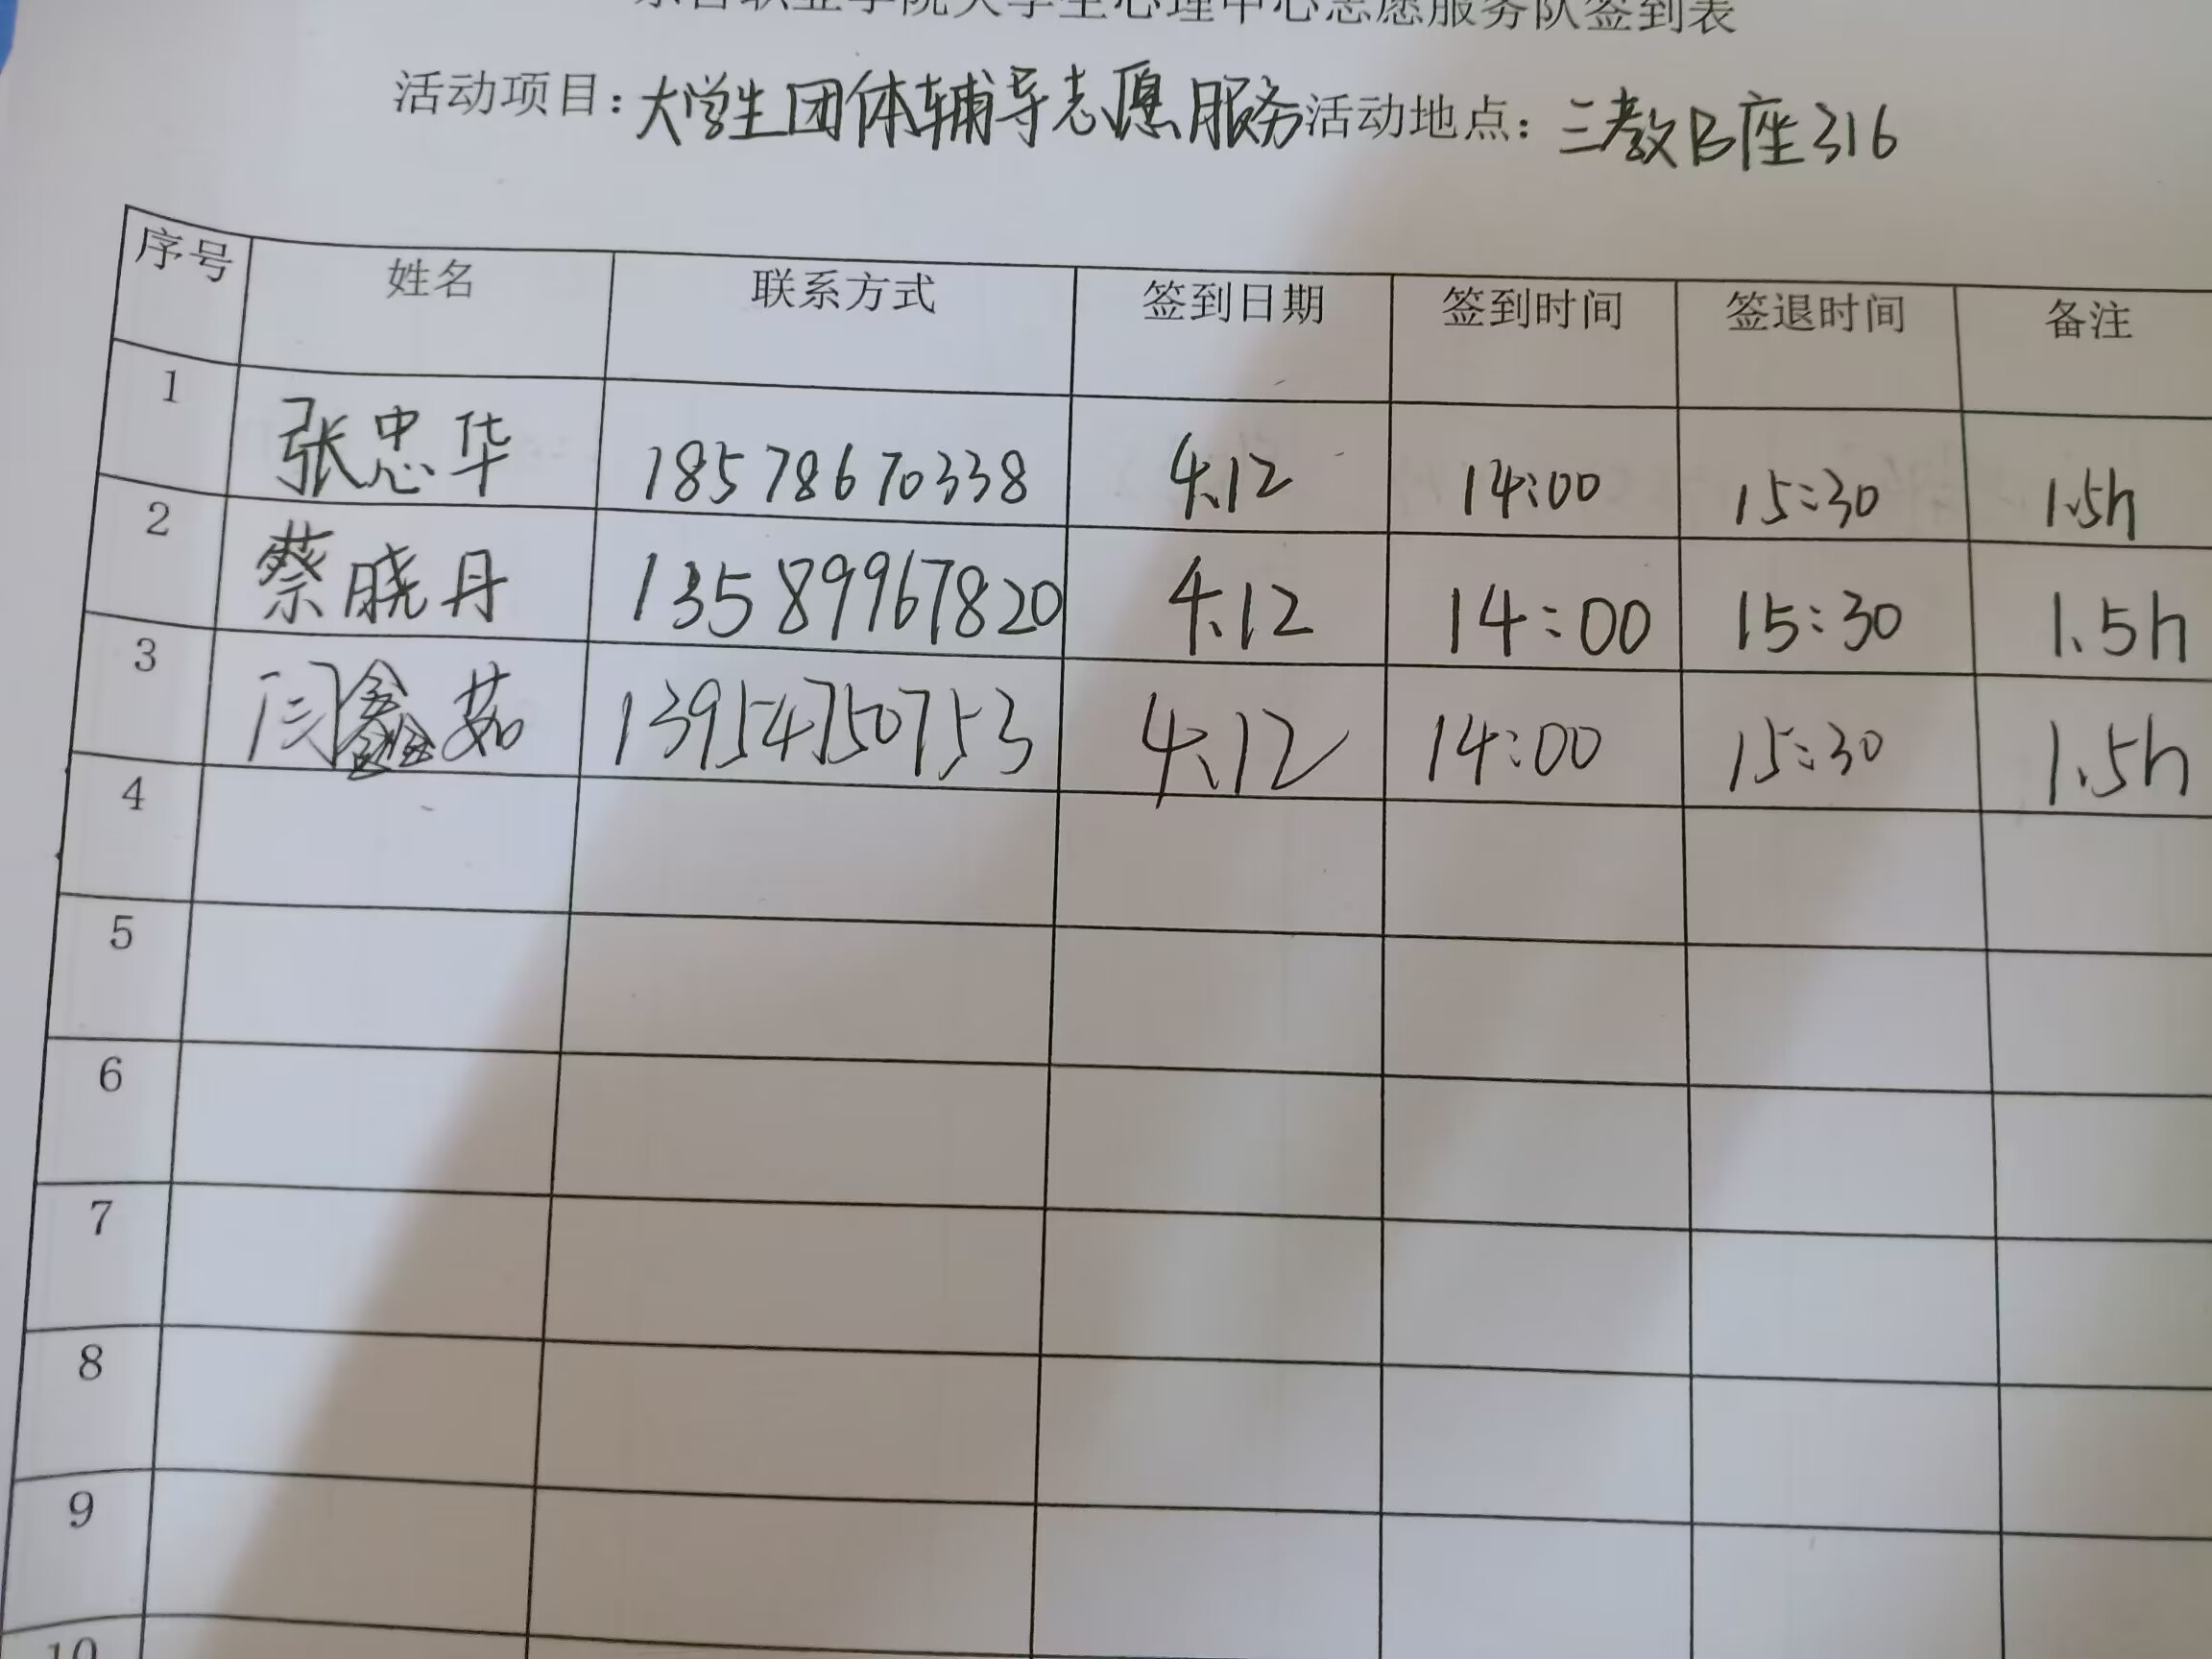 职业学院大学生心理中心志愿服务队签到表
活动项目：大学生团体辅导志愿服务 活动地点：三教B座316
序号 姓名 联系方式 签到日期 签到时间 签退时间 备注
1 张忠华 18578670338 4.12 14:00 15:30 1.5h
2 蔡晓丹 13589967820 4.12 14:00 15:30 1.5h
3 闫鑫茹 13954750753 4.12 14:00 15:30 1.5h
4
5
6
7
8
9
10